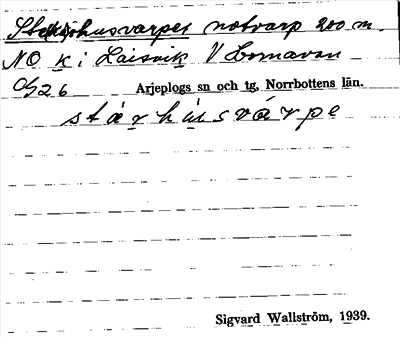 notvarp 200 m.
NO k i Laisvik V Hornavan
Arjeplogs sn och tg, Norrbottens län.
stárhúsvárpe
Sigvard Wallström, 1939.